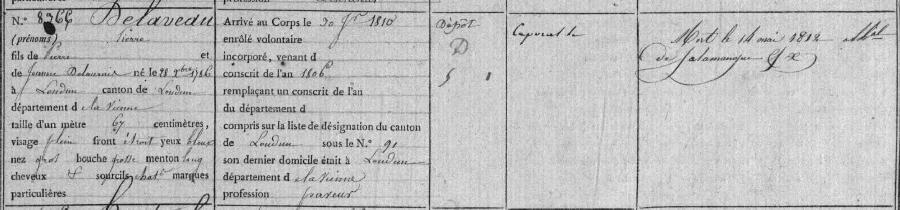 N.° 8366 Delaveau
(prénoms) Pierre
fils de Pierre et
de Jeanne Delaunais né le 28 Xbre 1786
à Loudun canton de Loudun
département d e la Vienne
taille d'un mètre 67 centimètres,
visage plein front étroit yeux bleux
nez gros bouche grosse menton long
cheveux & sourcils chat.ns marques
particulières
Arrivé au Corps le 30 1810
enrôlé volontaire
incorporé, venant d
conscrit de l'an 1806
remplaçant un conscrit de l'an
du département d
compris sur la liste de désignation du canton
de Loudun sous le N.° 91
son dernier domicile était à Loudun
département d e la Vienne
profession paveur
Dépôt
D
5 1
Caporal le
Mort le 14 mai 1812 
de Salamanque